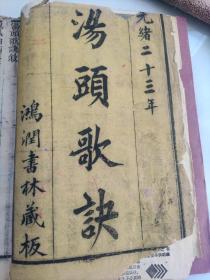 光緒二十三年
湯頭歌訣
鴻潤書林藏板